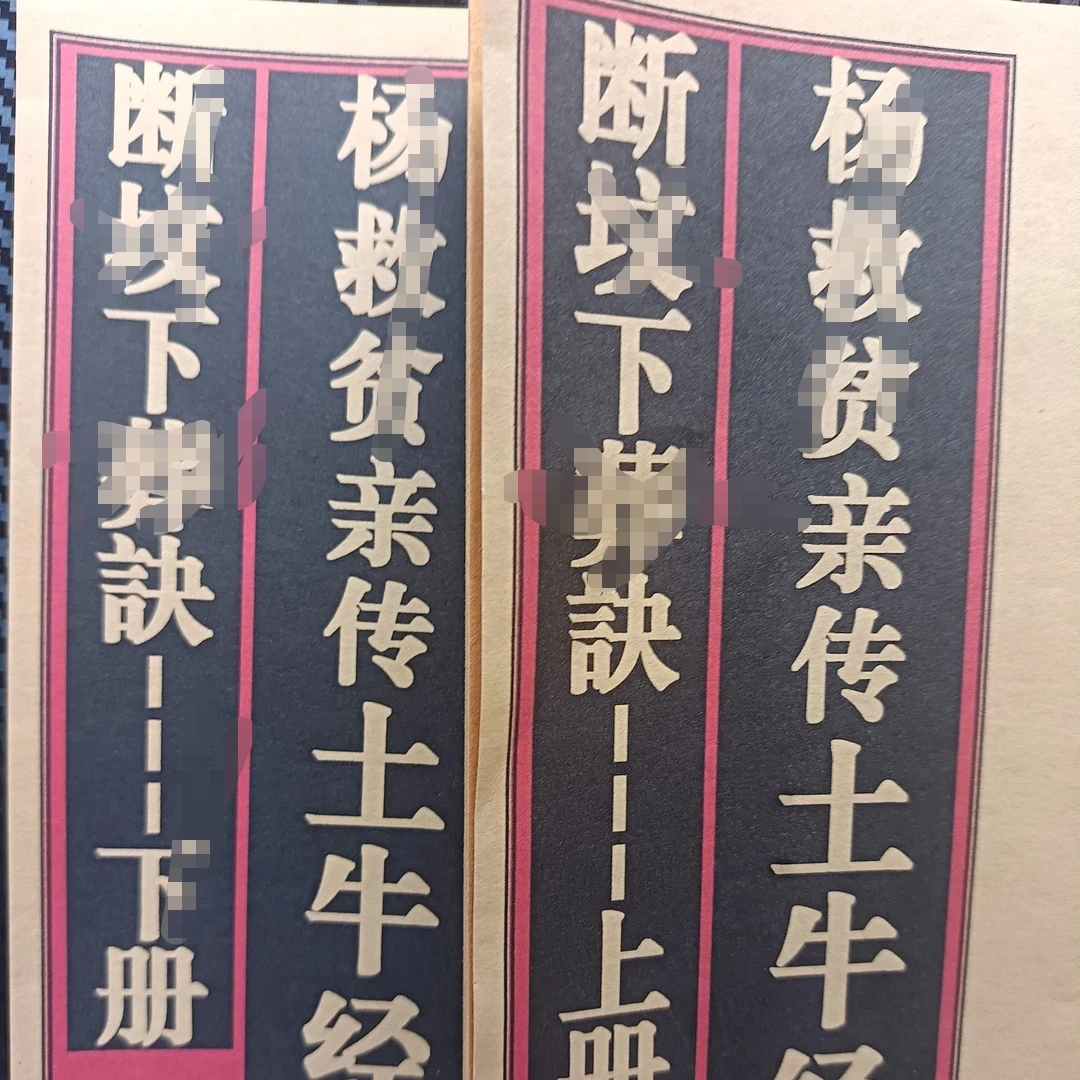 杨救贫亲传土牛经
断坟下葬訣---下册
杨救贫亲传土牛经
断坟下葬訣---上册